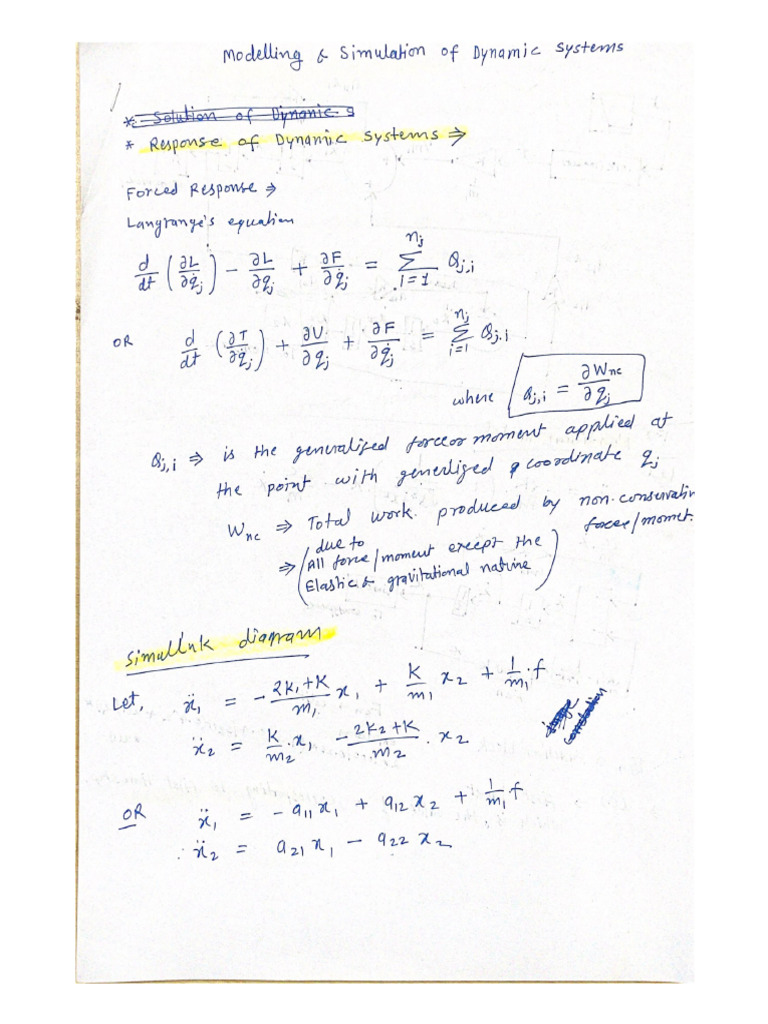 Modelling & Simulation of Dynamic Systems
* Solution of Dynamic s
* Response of Dynamic Systems ⇒
Forced Response ⇒
Langrange's equation
d/dt (∂L/∂q̇j) − ∂L/∂qj + ∂F/∂q̇j = Σ_{i=1}^{nj} Qj,i
OR d/dt (∂T/∂q̇j) + ∂V/∂qj + ∂F/∂q̇j = Σ_{i=1}^{nj} Qj,i
where Qj,i = ∂Wnc/∂qj
Qj,i ⇒ is the generalized force or moment applied at
the point with generlized coordinate qj
Wnc ⇒ Total work produced by non-conservativ
force/momet.
⇒ (due to
All force/moment except the
Elastic & gravitational nature)
Simullnk diagram
Let, ẍ1 = − (2k1+k)/m1 x1 + k/m1 x2 + 1/m1 . f
ẍ2 = k/m2 . x1 − (2k2+k)/m2 . x2
OR ẍ1 = − a11 x1 + a12 x2 + 1/m1 f
ẍ2 = a21 x1 − a22 x2